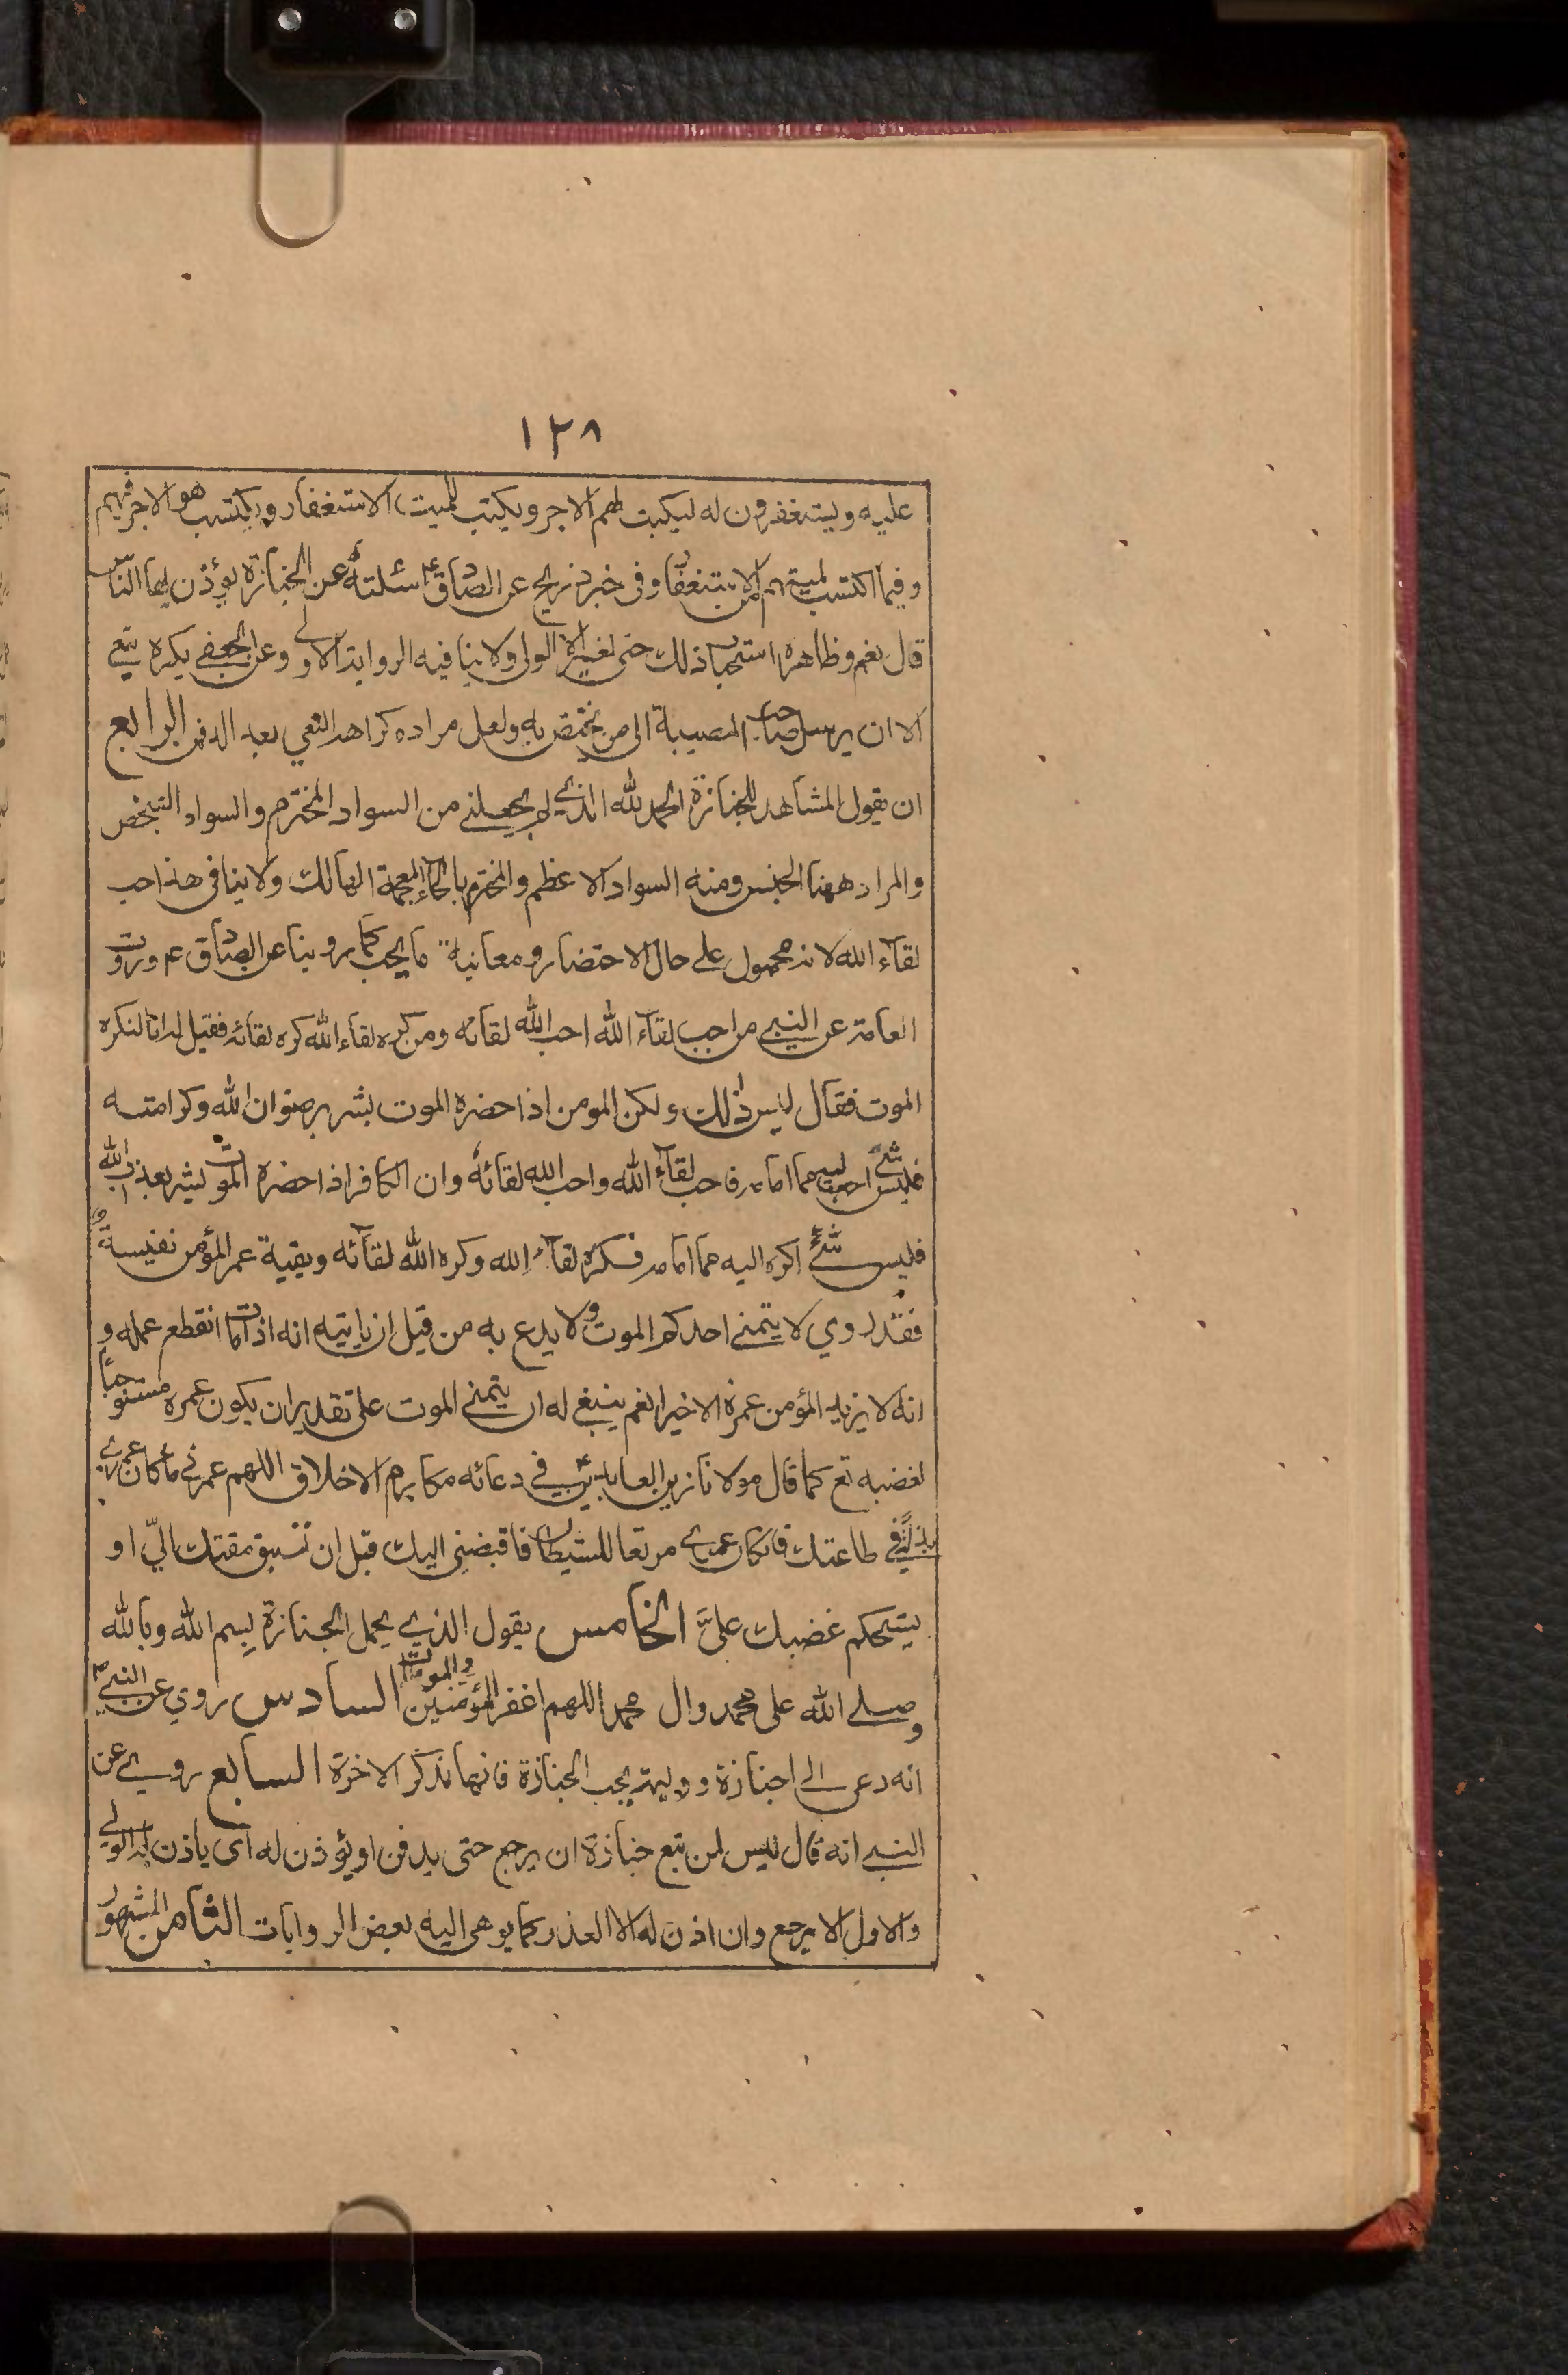 ١٢٨
عليه ويستغفرون له ليكبت لهم الاجر ويكتب للميت الاستغفار ويكتسب هو الاجر فيهم
وفيما اكتسب لميتهم من الاستغفار وفى خبر ذريح عن الصادق ع سئلته عن الجنازة يؤذن لها الناس
قال نعم وظاهره استحباب ذلك حتى لغير الولى ولا ينافيه الرواية الاولى وعن الجعفى يكره نعى
الا ان يرسل صاحب المصيبة الى من يختص به ولعل مراده كراهه النعى بعد الدفن الرابع
ان يقول المشاهد للجنازة الحمد لله الذي لم يجعلنى من السواد المخترم والسواد الشخص
والمراد ههنا الجنس ومنه السواد الاعظم والمخترم بالخاء المعجمة الهالك ولا ينافى هذا حب
لقاء الله لانه محمول على حال الاحتضار ومعانية ما يحب كما روينا عن الصادق ع وروت
العامة عن النبي من احب لقاء الله احب الله لقائه ومن كره لقاء الله كره لقائه فقيل له انا لنكره
الموت فقال ليس ذلك ولكن المومن اذا حضره الموت بشر برضوان الله وكرامته
فليس شئ احب اليه مما امامه فاحب لقاء الله واحب الله لقائه وان الكافر اذا حضره الموت بشر بعذاب الله
فليس شئ اكره اليه مما امامه فكره لقاء الله وكره الله لقائه وبقية عمر المؤمن نفيسة
فقد روي لا يتمنى احدكم الموت ولا يدع به من قبل ان ياتيه انه اذا مات انقطع عمله و
انه لا يزيد المؤمن عمره الا خيرا نعم ينبغي له ان يتمنى الموت على تقدير ان يكون عمره مستوجبا
لغضبه تع كما قال مولانا زين العابدين ع في دعائه مكارم الاخلاق اللهم عمرني ما كان عمري
بذلة في طاعتك فان كان عمري مرتعا للشيطان فاقبضنى اليك قبل ان تسبق مقتك اليّ او
يستحكم غضبك عليّ الخامس يقول الذي يحمل الجنازة بسم الله وبالله
وصلى الله على محمد وال محمد اللهم اغفر للمؤمنين والمومنات السادس روي عن النبي ص
انه دعى الى جنازة ووليمة يجب الجنازة فانها تذكر الاخرة السابع روي عن
النبي انه قال ليس لمن تبع جنازة ان يرجع حتى يدفن او يؤذن له اى ياذن له الولي
والاول الا يرجع وان اذن له الا لعذر كما يوهى اليه بعض الروايات الثامن المشهور